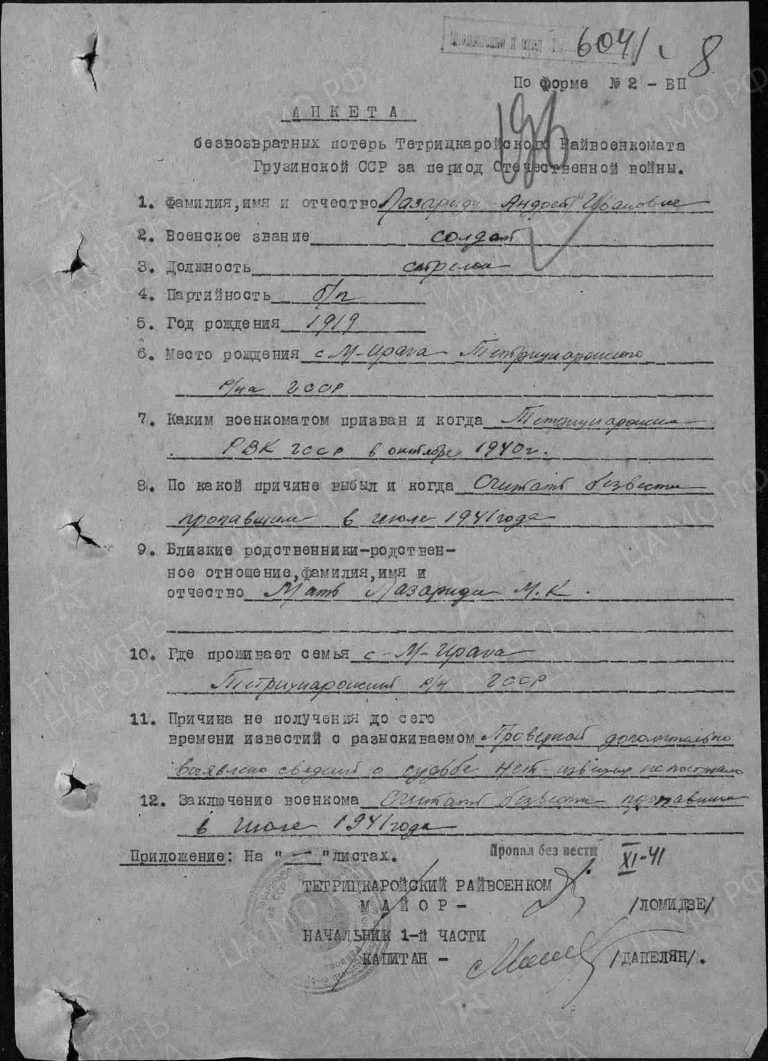 6041с 8
По форме № 2 - БП
АНКЕТА
196
безвозвратных потерь Тетрицкаройского Райвоенкомата
Грузинской ССР за период Отечественной войны.
1. Фамилия, имя и отчество Лазариди Андрей Иванович
2. Военское звание солдат
3. Должность стрелок
4. Партийность б/п
5. Год рождения 1919
6. Место рождения с М-Ирага Тетрицкаройского
р/на ГССР
7. Каким военкоматом призван и когда Тетрицкаройским
РВК ГССР в октябре 1940г.
8. По какой причине выбыл и когда Считать безвести
пропавшим в июле 1941 года
9. Близкие родственники-родствен-
ное отношение, фамилия, имя и
отчество Мать Лазариди М.К.
10. Где проживает семья с-М-Ирага
Тетрицкаройский р/н ГССР
11. Причина не получения до сего
времени известий с разыскиваемом Проверкой дополнительно
выявлено сведений о судьбе нет-извещ. не поступало
12. Заключение военкома Считать безвести пропавшим
в июле 1941 года
Приложение: На " — " листах.
Пропал без вести XI-41
ТЕТРИЦКАРОЙСКИЙ РАЙВОЕНКОМ
МАЙОР - /ЛОМИДЗЕ/
НАЧАЛЬНИК 1-й ЧАСТИ
КАПИТАН - /ДАНЕЛЯН/.